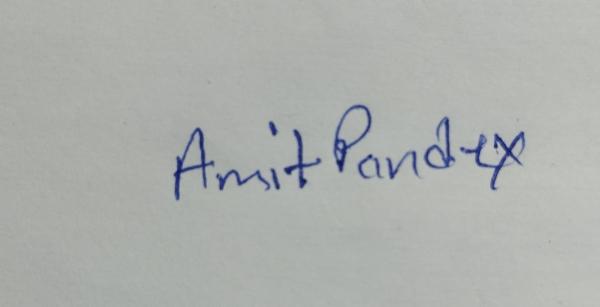 Amit Pandey